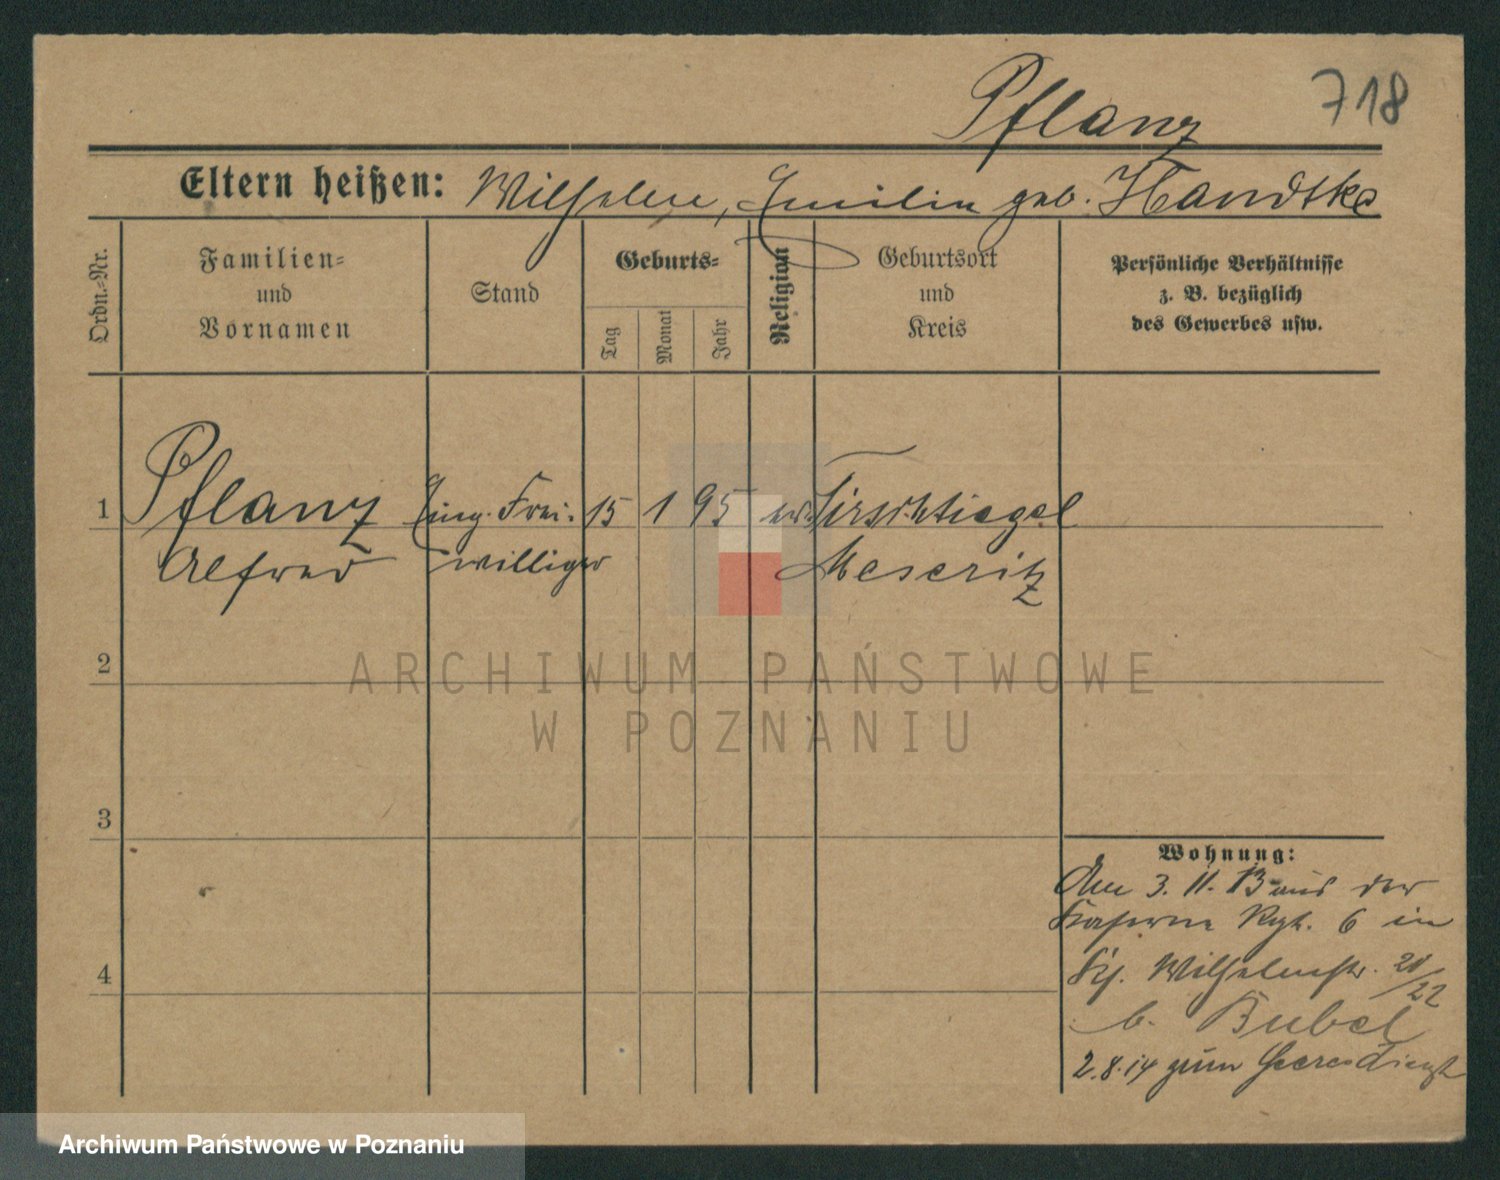 Pflanz 718
Eltern heißen: Wilhelm, Emilie geb. Handtke
Ordn.-Nr.
Familien-
und
Vornamen
Stand
Geburts-
Tag
Monat
Jahr
Religion
Geburtsort
und
Kreis
Persönliche Verhältnisse
z. B. bezüglich
des Gewerbes usw.
1 Pflanz Einj. Frei- 15 1 95 ev. Tirschtiegel
Alfred williger Meseritz
2
3
4
Wohnung:
Am 3. 11. 13 aus der
Kaserne Rgt. 6 in
Wilhelmstr. 21/22
b. Bubel
2.8.14 zum Heeresdienst
ARCHIWUM PAŃSTWOWE
W POZNANIU
Archiwum Państwowe w Poznaniu